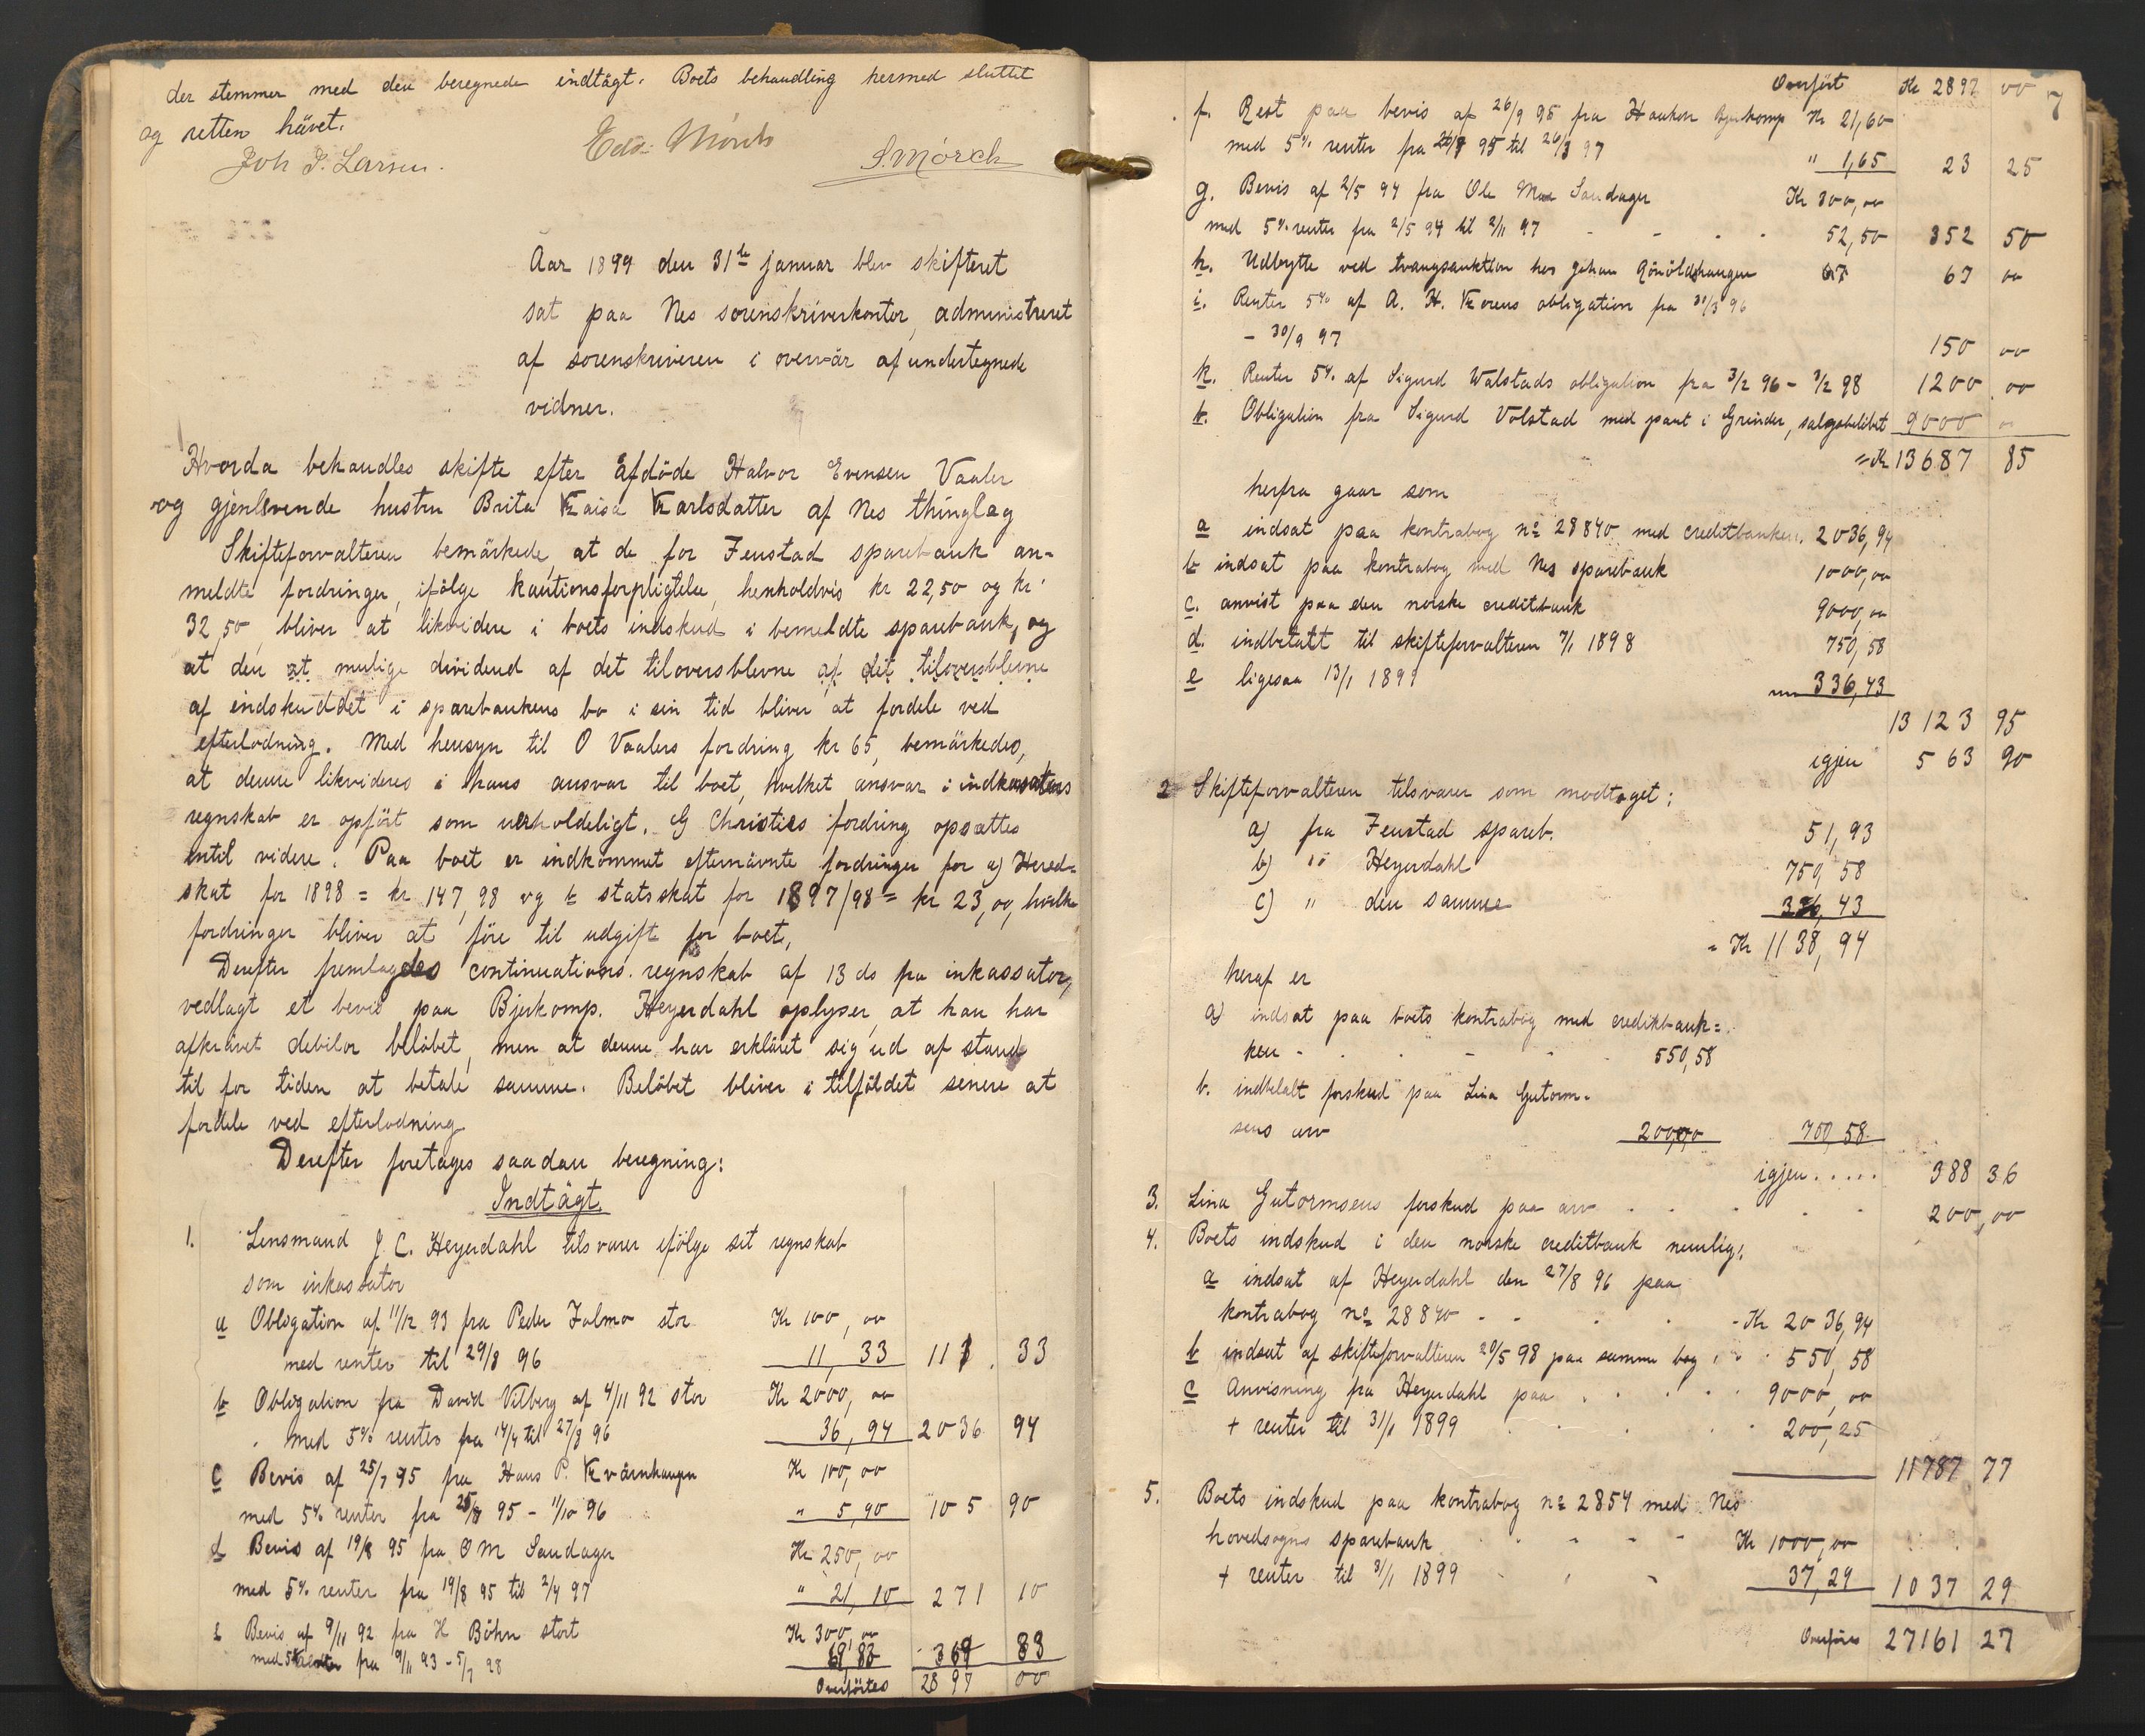 der stemmer med den beregnede indtägt. Boets behandling hermed sluttet
og retten hävet.
Joh P. Larsen. Edv. Mörch S. Mörch
Aar 1899 den 31te januar blev skifteret
sat paa Nes sorenskriverkontor, administreret
af sorenskriveren i overvär af undertegnede
vidner.
Hvorda behandles skifte efter afdöde Halvor Evensen Vaaler
og gjenlevende hustru Brita Kaisa Karlsdatter af Nes thinglag
Skifteforvalteren bemärkede, at de for Fenstad sparebank an-
meldte fordringer, ifölge kautionsforpligtelse, henholdvis kr 22,50 og kr
32,50 bliver at likvidere i boets indskud i bemeldte sparebank, og
at den at mulige dividend af det tiloversblevne af det tiloversblevne
af indskuddet i sparebankens bo i sin tid bliver at fordele ved
efterlodning. Med hensyn til O Vaalers fordring kr 65, bemärkedes,
at denne likvideres i hans ansvar til boet, hvilket ansvar i indkassators
regnskab er opfört som uerholdeligt. G Christies fordring opsættes
intil videre. Paa boet er indkommet efternävnte fordringer for a) Hered=
skat for 1898 = kr 147,98 og b statsskat for 1897/98 = kr 23,00, hvilke
fordringer bliver at före til udgift for boet,
Derefter fremlagdes continuations. regnskab af 13 ds fra inkassator,
vedlagt et bevis paa Bjerkomp. Heyerdahl oplyser, at han har
afkrävet debitor belöbet, men at denne har erkläret sig ud af stand
til for tiden at betale samme. Belöbet bliver i tilfäldet senere at
fordele ved efterlodning
Derefter foretages saadan beregning:
Indtägt.
1. Lensmand J. C. Heyerdahl tilsvarer ifölge sit regnskab
som inkassator
a Obligation af 11/12 93 fra Peder Julmo stor Kr 100,00
med renter til 29/8 96 11,33 111. 33
b Obligation fra David Vilberg af 4/11 92 stor Kr 2000,00
med 5% renter fra 14/4 til 27/8 96 36,94 2036 94
c Bevis af 25/7 95 fra Hans P. Kvärnhaugen Kr 100,00
med 5% renter fra 25/8 95 - 11/10 96 " 5,90 105 90
d Bevis af 19/8 95 fra O M Sandager Kr 250,00
med 5% renter fra 19/8 95 til 2/4 97 " 21,10 271 10
e Bevis af 9/11 92 fra H Böhn stort Kr 300,00
med 5% renter fra 9/11 93 - 5/7 98 69,83 369 83
Overföres 2897 00
7
Overfört Kr 2897 00
f. Rest paa bevis af 26/9 95 fra Haakon Bjerkomp Kr 21,60
med 5% renter fra 26/9 95 til 26/3 97 " 1,65 23 25
g. Bevis af 2/5 94 fra Ole M Sandager Kr 300,00
med 5% renter fra 2/5 94 til 2/11 97 52,50 352 50
h. Udbytte ved tvangsauktion hos Johan Rönöldshaugen 67 67 00
i. Renter 5% af A. H. Korens obligation fra 30/3 96
- 30/9 97 150 00
k. Renter 5% af Sigurd Walstads obligation fra 3/2 96 - 3/2 98 1200 00
k. Obligation fra Sigurd Volstad med pant i Grinder, salgsbelöbet 9000
= Kr 13687 85
herfra gaar som
a indsat paa kontrabog No 28840 med creditbanken. 2036,94
b indsat paa kontrabog ved Nes sparebank 1000,00
c. anvist paa den norske creditbank 9000,00
d. indbetalt til skifteforvalteren 7/1 1898 750,58
e ligesaa 13/1 1899 336,43
13123 95
igjen 563 90
2 Skifteforvalteren tilsvarer som modtaget:
a) fra Fenstad spareb. 51,93
b) " Heyerdahl 750,58
c) " den samme 336,43
= Kr 1138,94
heraf er
a) indsat paa boets kontrabog med creditbank=
ken - 550,58
b. indbetalt forskud paa Lina Gutorm-
sens arv 200,00 750,58
igjen..... 388 36
3. Lina Gutormsens forskud paa arv 200,00
4. Boets indskud i den norske creditbank nemlig:
a indsat af Heyerdahl den 27/8 96 paa
kontrabog No 28840 - - Kr 2036,94
b indsat af skifteforvalteren 20/5 98 paa samme bog 550,58
c Anvisning fra Heyerdahl paa 9000,00
+ renter til 31/1 1899 200,25
11787 77
5. Boets indskud paa kontrabog No 2854 med Nes
hovedsogns sparebank Kr 1000,00
+ renter til 31/1 1899 37,29 1037 29
Overföres 27161 27